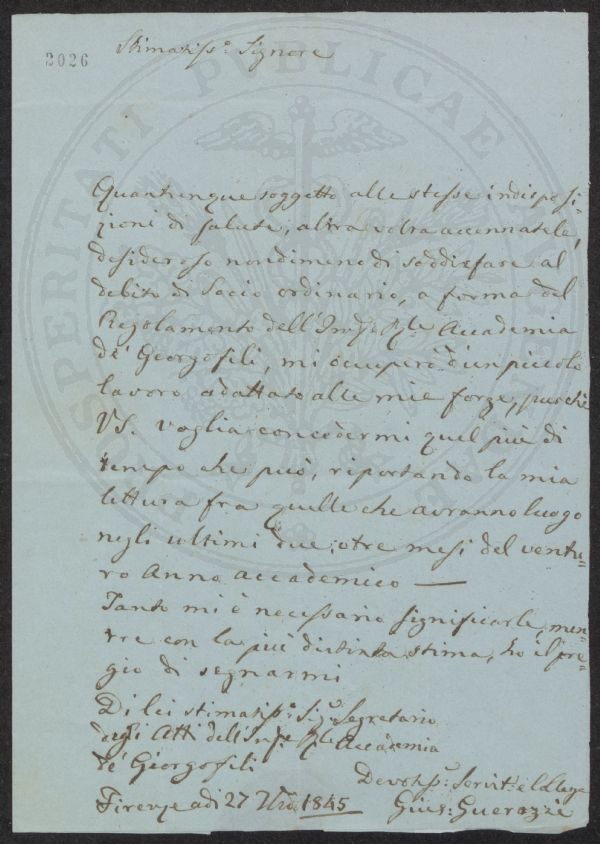 2026
Stimatiss.º Signore
Quantunque soggetto alle stesse indisposi-
zioni di salute, altra volta accennatele,
desideroso nondimeno di soddisfare al
debito di Socio ordinario, a forma del
Regolamento dell'Imp.e R.le Accademia
de' Georgofili, mi occuperò d'un piccolo
lavoro adattato alle mie forze, purchè
VS. voglia concedermi quel più di
tempo che può, riportando la mia
lettura fra quelle che avranno luogo
negli ultimi due, o tre mesi del ventu-
ro Anno accademico —
Tanto mi è necessario significarle, men-
tre con la più distinta stima, ho il pre-
gio di segnarmi
Di lei stimatiss.º Sig.r Segretario
degli Atti dell'Imp.e R.le Accademia
de' Georgofili
Devotiss.º Servit.e e Collega
Firenze adì 27 1845
Gius: Guerazzi
PROSPERITATI PVBLICAE AVGENDAE